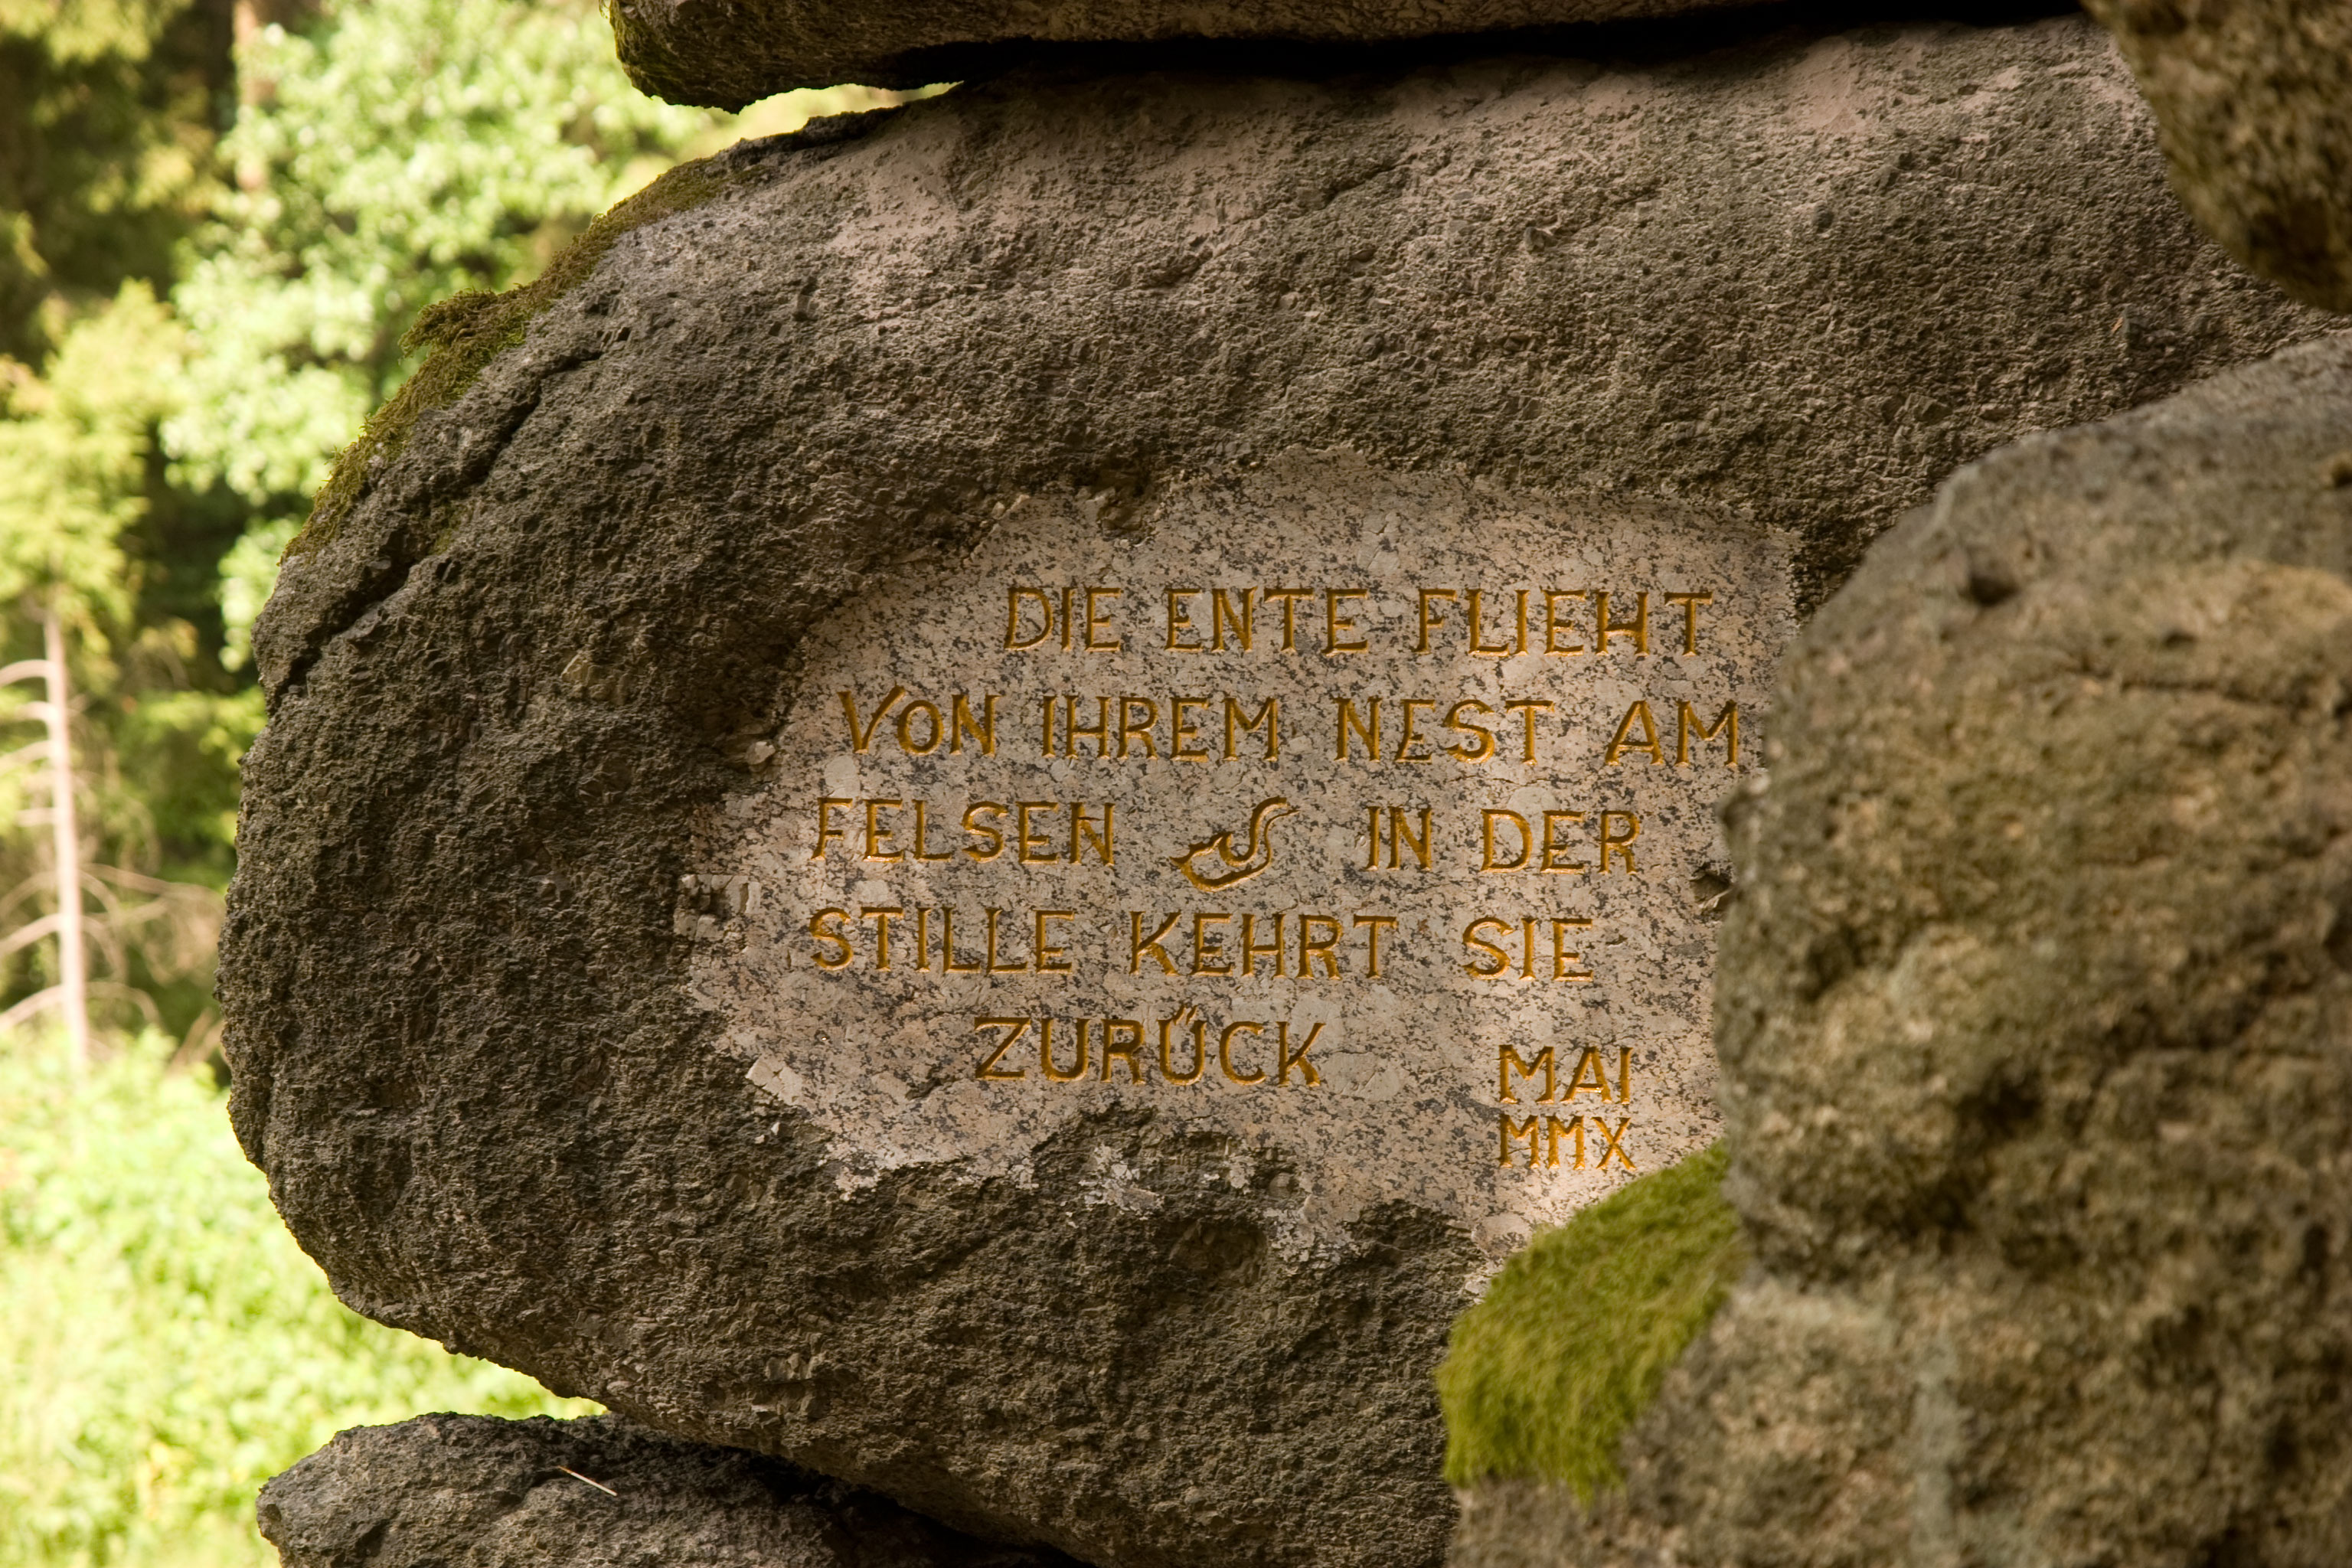 DIE ENTE FLIEHT
VON IHREM NEST AM
FELSEN IN DER
STILLE KEHRT SIE
ZURÜCK
MAI
MMX